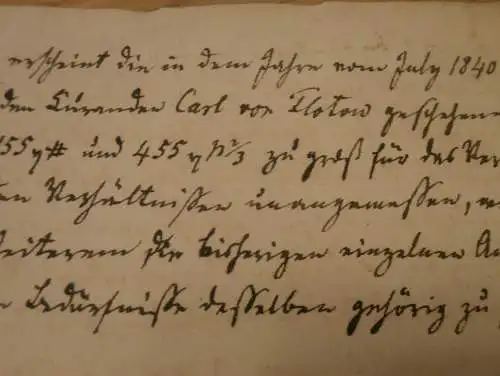 erscheint die in dem Jahre vom July 1840
den Curanden Carl von Flotow geschehene
und 455 zu groß für das Ver
en Verhältnissen unangemessen,
Weiterem die bisherigen einzelnen
Bedürfnisse desselben gehörig zu